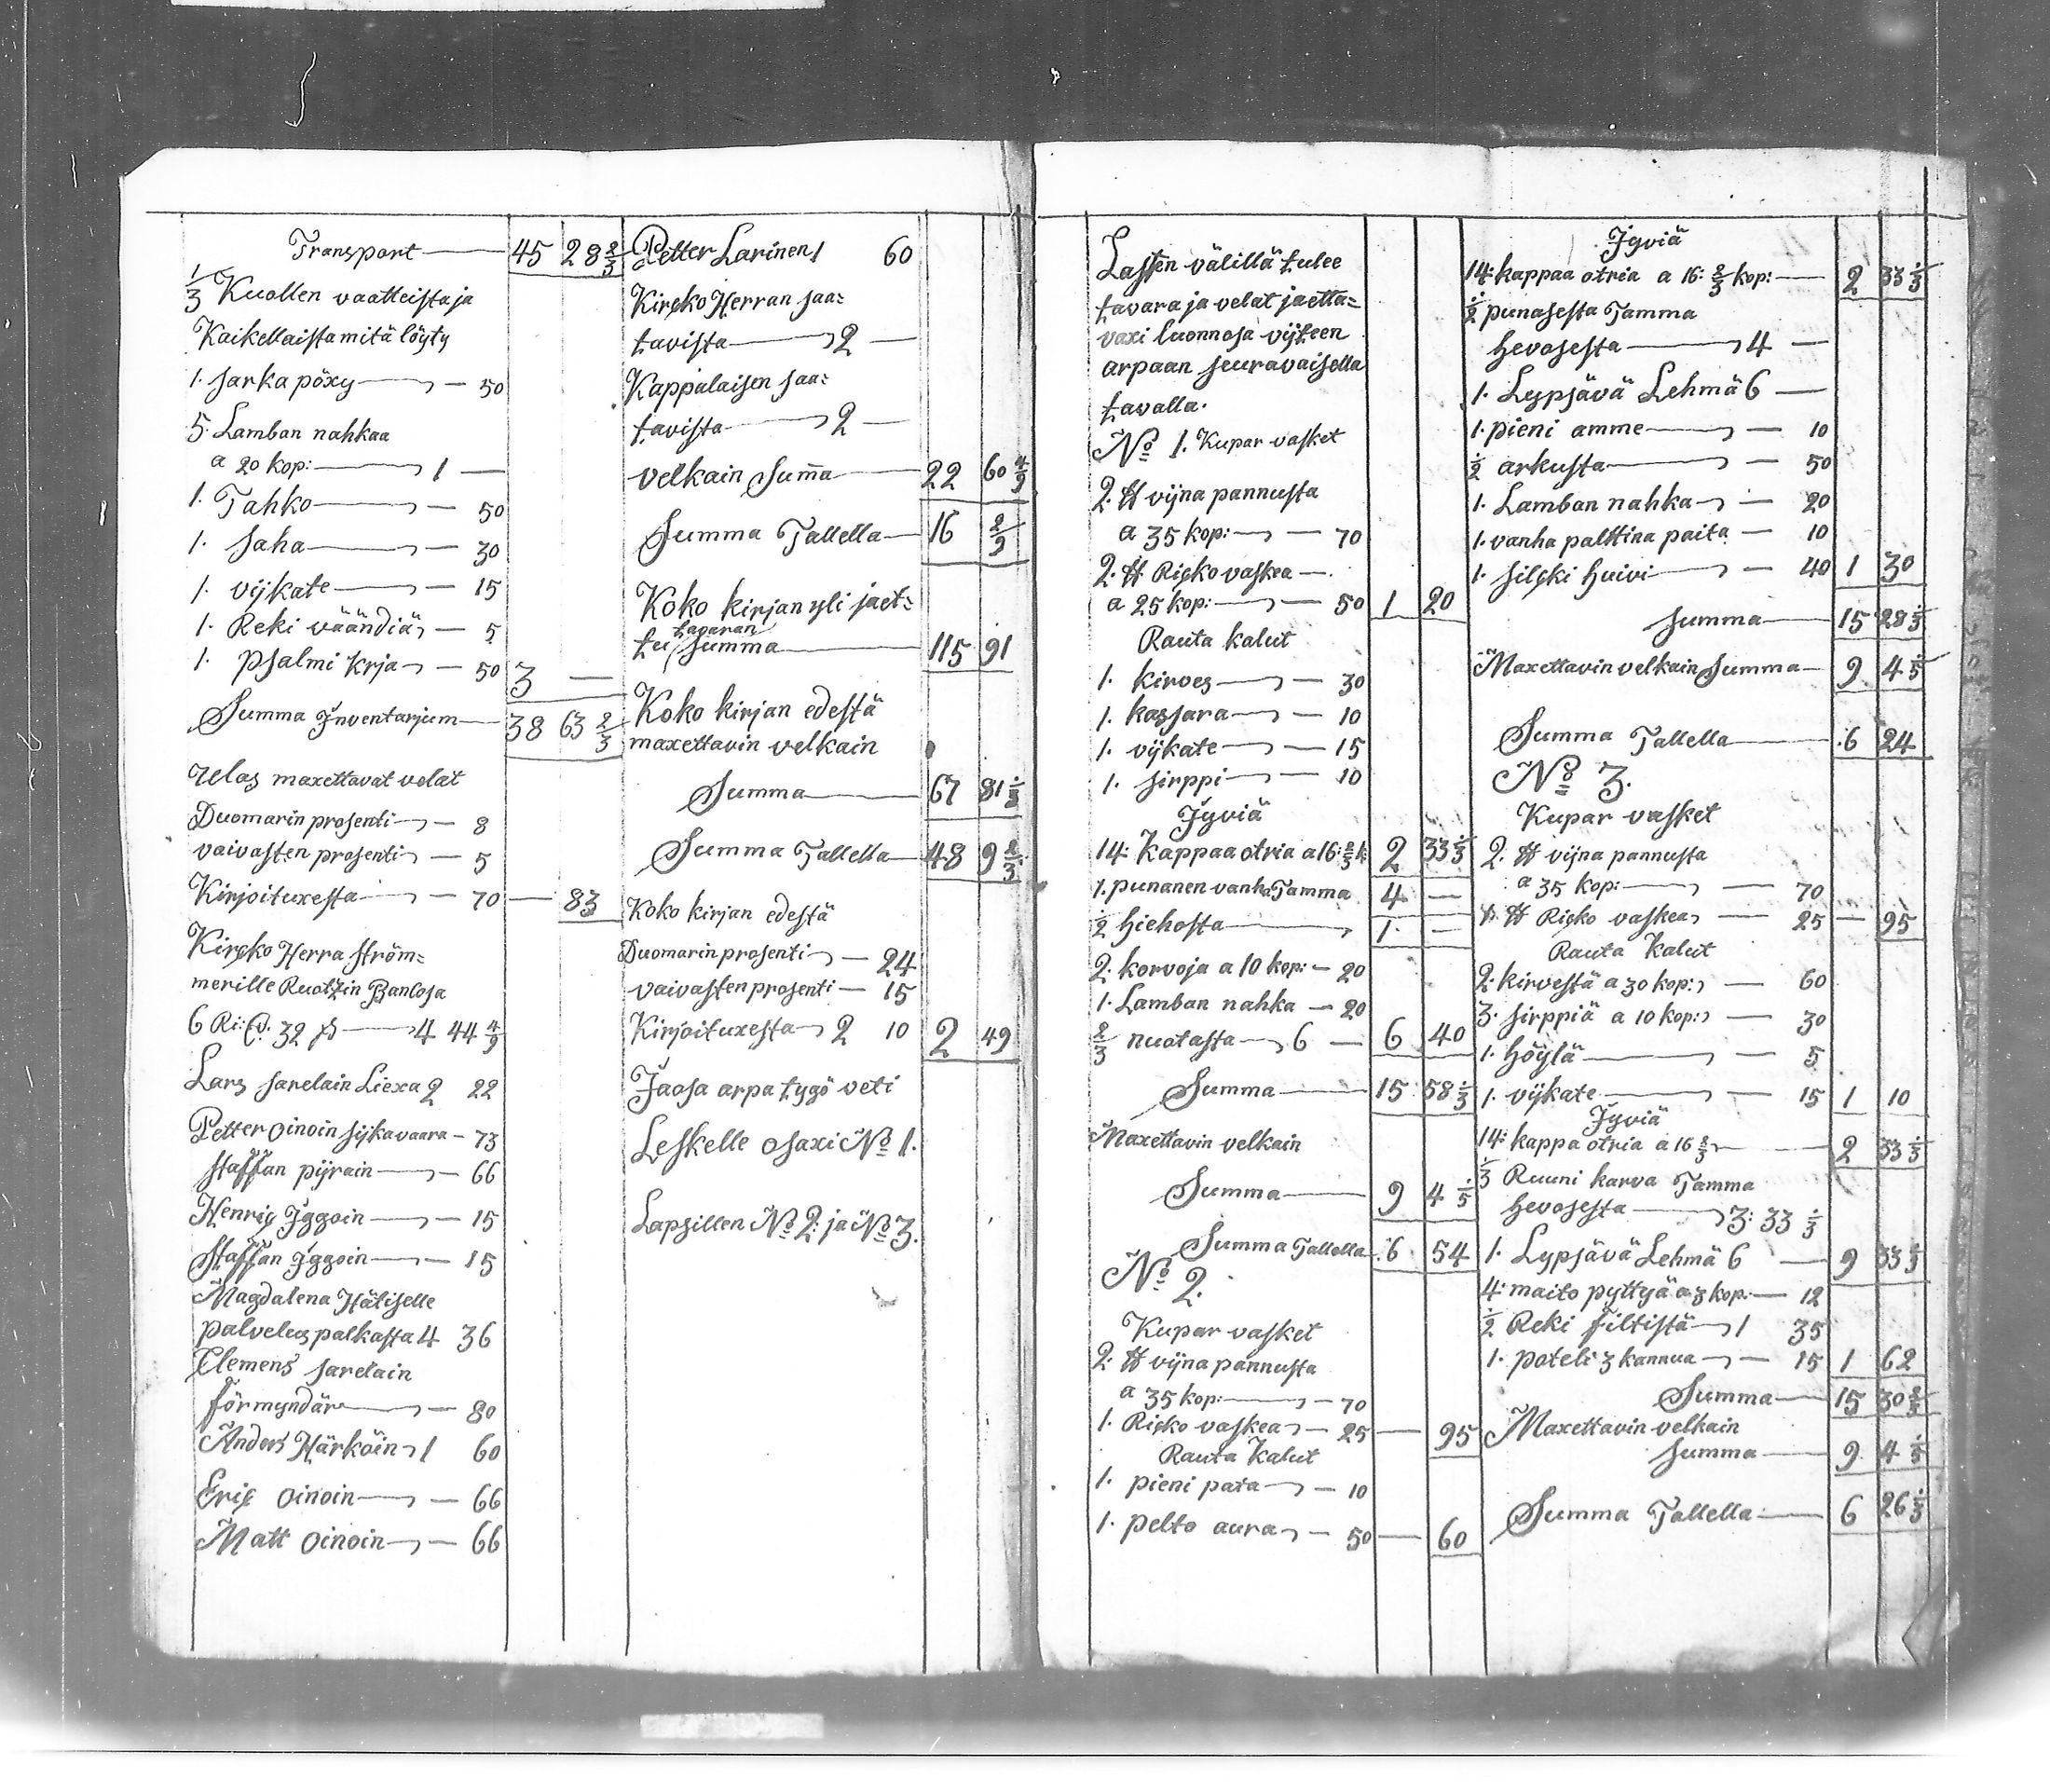 Transport — 45 28 2/3
1/3 Kuollen vaatteista ja
Kaikellaista mitä löyty
1. sarka pöxy — 50
5. Lamban nahkaa
a 20 kop: — 1 —
1. Tahko — 50
1. saha — 30
1. vijkate — 15
1. Reki väändiä — 5
1. Psalmi krja — 50 3 —
Summa Inventarjum — 38 63 2/3
Ulos maxettavat velat
Duomarin prosenti — 8
vaivasten prosenti — 5
Kirjoituxesta — 70 — 83
Kircko Herra ström=
merille Ruotzin Bancosa
6 Ri: 32 — 4 44 4/9
Lars sarelain Liexa 2 22
Petter Oinoin sijkavaara — 73
Staffan pijrain — 66
Henric Iggoin — 15
Staffan Iggoin — 15
Magdalena Hätiselle
palvelus palkasta 4 36
Clemens sarelain
förmyndäre — 80
Anders Härköin 1 60
Eric Oinoin — 66
Matt Oinoin — 66
Petter Larinen 1 60
Kircko Herran saa=
tavista — 2 —
Kappalaisen saa=
tavista — 2 —
velkain Summa — 22 60 4/9
Summa Tallella — 16 2/9
Koko kirjan yli jaet=
tavaran
tu summa — 115 91
Koko kirjan edestä
maxettavin velkain
Summa — 67 81 1/3
Summa Tallella — 48 9 2/3
Koko kirjan edestä
Duomarin prosenti — 24
vaivasten prosenti — 15
Kirjoituxesta 2 10 2 49
Jaosa arpa tygö veti
Leskelle osaxi No 1.
Lapsillen No 2: ja No 3.
Lasten välillä tulee
tavara ja velat jaetta=
vaxi luonnosa vijteen
arpaan seuravaisella
tavalla.
No 1. Kupar vasket
2. ℔ vijna pannusta
a 35 kop: — 70
2. ℔ Ricko vaskea —
a 25 kop: — 50 1 20
Rauta kalut
1. kirves — 30
1. kassara — 10
1. vijkate — 15
1. sirppi — 10
Jyviä
14: Kappaa otria a 16: 2/3 k: 2 33 1/3
1. punanen vanha Tamma 4 —
1/2 hiehosta — 1 —
2. korvoja a 10 kop: — 20
1. Lamban nahka — 20
2/3 nuotasta — 6 — 6 40
Summa — 15 58 1/3
Maxettavin velkain
Summa — 9 4 1/5
Summa Tallella 6 54
No 2.
Kupar vasket
2: ℔ vijna pannusta
a 35 kop: — 70
1. Ricko vaskea — 25 — 95
Rauta Kalut
1. pieni pata — 10
1. pelto aura — 50 — 60
Jyviä
14: kappaa otria a 16: 2/3 kop: — 2 33 1/3
1/2 punasesta Tamma
hevosesta — 4 —
1. Lypsävä Lehmä 6 —
1. pieni amme — 10
1/2 arkusta — 50
1. Lamban nahka — 20
1. vanha palttina paita — 10
1. silcki huivi — 40 1 30
summa — 15 28 1/3
Maxettavin velkain Summa — 9 4 1/5
Summa Tallella — 6 24
No 3.
Kupar vasket
2. ℔ vijna pannusta
a 35 kop: — 70
1. ℔ Ricko vaskea — 25 — 95
Rauta Kalut
2. kirvestä a 30 kop: — 60
3. sirppiä a 10 kop: — 30
1. höylä — 5
1. vijkate — 15 1 10
Jyviä
14: kappa otria a 16 2/3 — 2 33 1/3
1/3 Ruuni karva Tamma
hevosesta — 3: 33 1/3
1. Lypsävä Lehmä 6 — 9 33 1/3
4. maito pyttyä a 3 kop: — 12
1/2 Reki filtistä — 1 35
1. poteli 3 kannua — 15 1 62
Summa — 15 30 2/3
Maxettavin velkain
summa — 9 4 1/5
Summa Tallella — 6 26 1/3